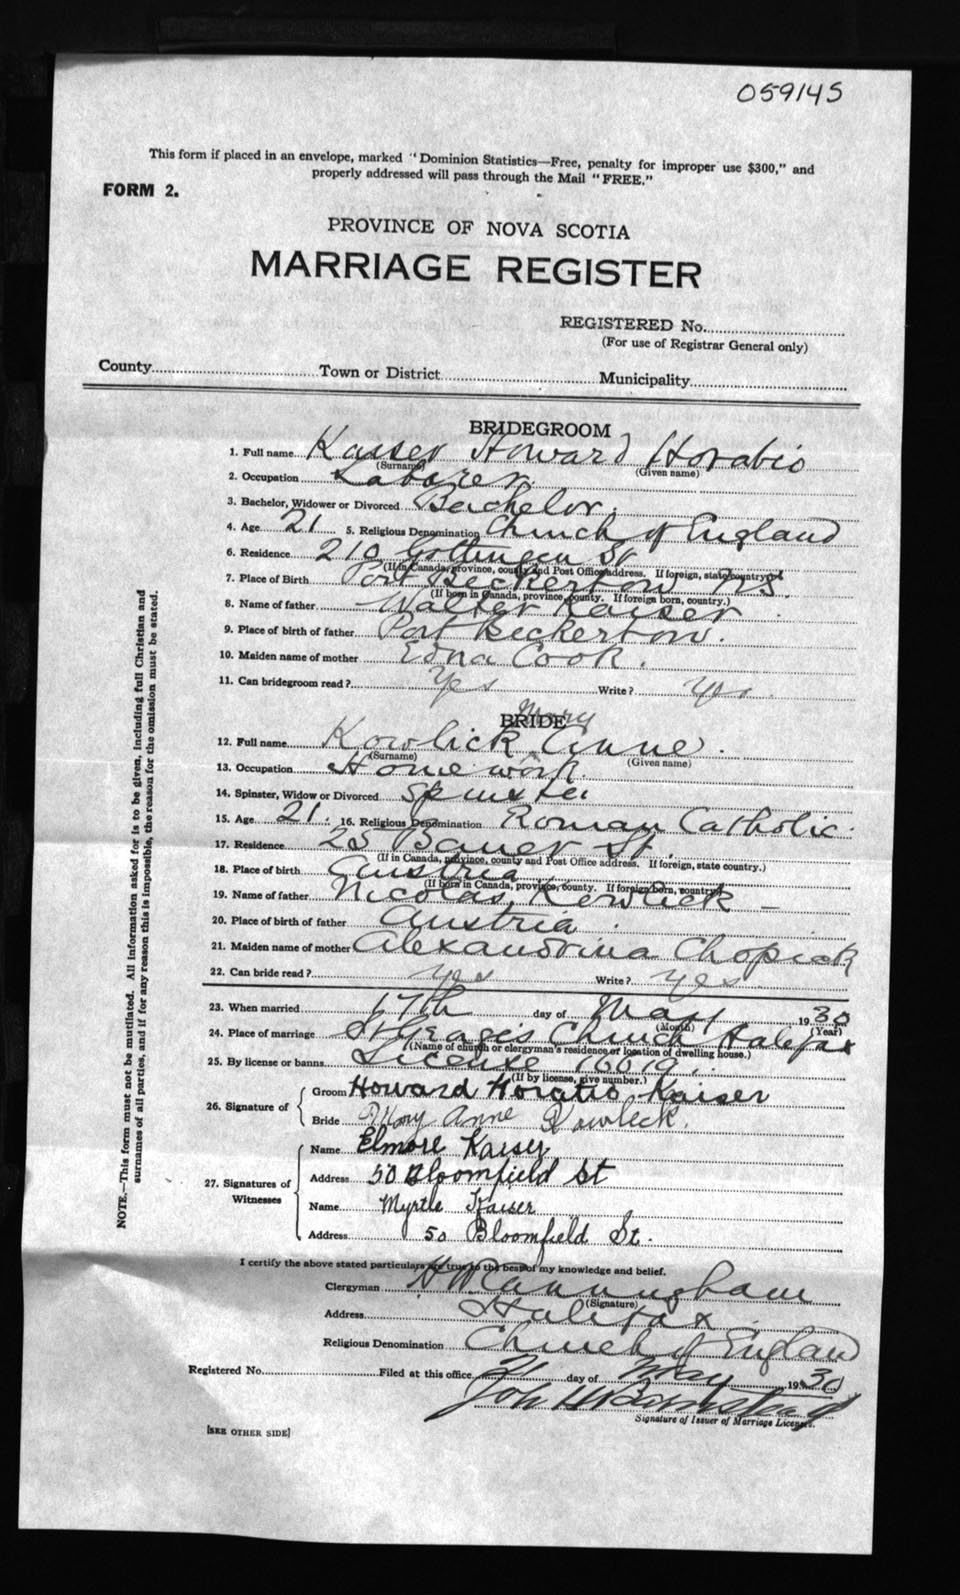 059145
This form if placed in an envelope, marked "Dominion Statistics—Free, penalty for improper use $300," and
properly addressed will pass through the Mail "FREE."
FORM 2.
PROVINCE OF NOVA SCOTIA
MARRIAGE REGISTER
REGISTERED No.
(For use of Registrar General only)
County Town or District Municipality
BRIDEGROOM
1. Full name Kaiser Howard Horatio
(Surname) (Given name)
2. Occupation Laborer.
3. Bachelor, Widower or Divorced Bachelor.
4. Age 21 5. Religious Denomination Church of England
6. Residence 210 Gottingen St
(If in Canada, province, county and Post Office address. If foreign, state country.)
7. Place of Birth Port Beckerton NS.
(If born in Canada, province, county. If foreign born, country.)
8. Name of father Walter Kaiser
9. Place of birth of father Port Beckerton.
10. Maiden name of mother Edna Cook.
11. Can bridegroom read? Yes Write? Yes.
BRIDE
Mary
12. Full name Kowlick Anne.
(Surname) (Given name)
13. Occupation Home work.
14. Spinster, Widow or Divorced Spinster
15. Age 21. 16. Religious Denomination Roman Catholic.
17. Residence 25 Bauer St.
(If in Canada, province, county and Post Office address. If foreign, state country.)
18. Place of birth Austria
(If born in Canada, province, county. If foreign born, country.)
19. Name of father Nicolas Kowlick
20. Place of birth of father Austria.
21. Maiden name of mother Alexandrina Chopick
22. Can bride read? Yes Write? Yes.
23. When married 17th day of May 1930
(Month) (Year)
24. Place of marriage St Georges Church Halifax
(Name of church or clergyman's residence or location of dwelling house.)
25. By license or banns License 16619.
(If by license, give number.)
26. Signature of
Groom Howard Horatio Kaiser
Bride Mary Anne Kowlick.
27. Signatures of Witnesses
Name Elmore Kaiser
Address 50 Bloomfield St
Name Myrtle Kaiser
Address 50 Bloomfield St.
I certify the above stated particulars are true to the best of my knowledge and belief.
Clergyman H W Cunningham
(Signature)
Address Halifax
Religious Denomination Church of England
Registered No. Filed at this office 21 day of May 1930
Signature of Issuer of Marriage Licenses.
[SEE OTHER SIDE]
NOTE.—This form must not be mutilated. All information asked for is to be given, including full Christian and
surnames of all parties, and if for any reason this is impossible, the reason for the omission must be stated.